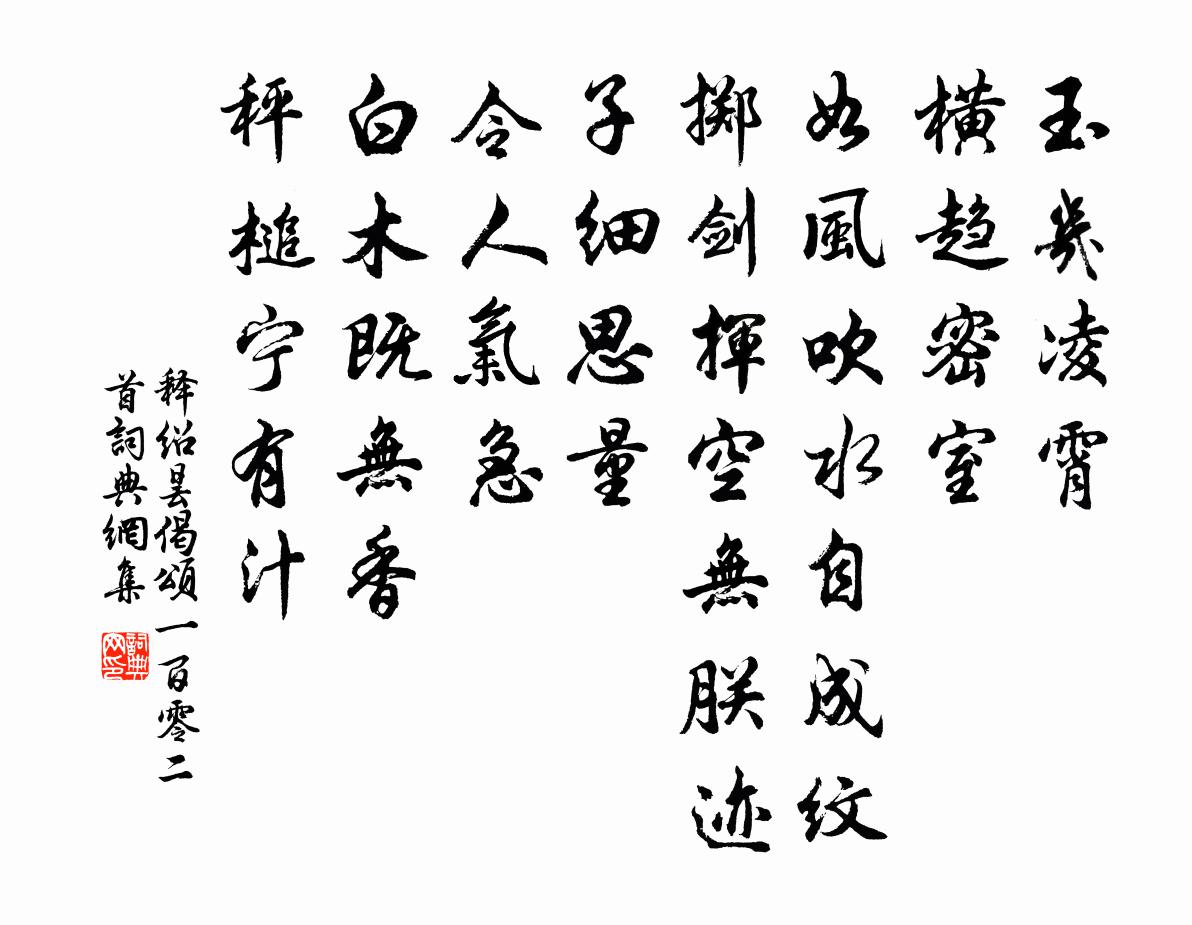 玉几凌霄
横趋密室
如風吹水自成紋
掷剑揮空無朕迹
子细思量
令人氣急
白木既無香
秤槌宁有汁
释绍昙偈頌一百零二
首詞典網集
詞典
网印